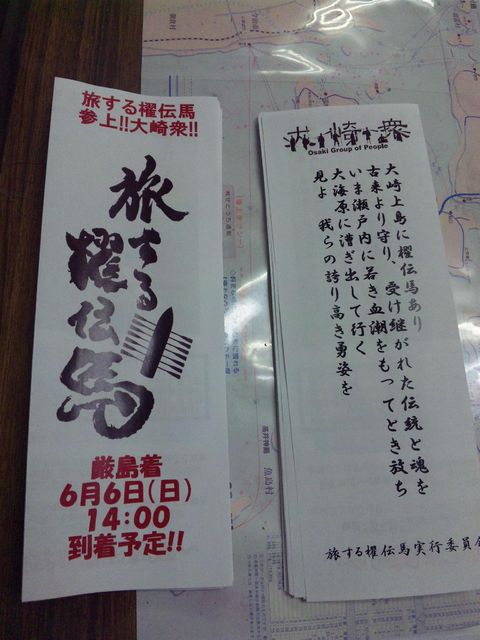 旅する櫂伝馬
参上!!大崎衆!!
旅する
櫂伝馬
厳島着
6月6日(日)
14:00
到着予定!!
大崎衆
Osaki Group of People
大崎上島に櫂伝馬あり
古来より守り、受け継がれた伝統と魂を
いま瀬戸内に若き血潮をもってとき放ち
大海原に漕ぎ出して行く
見よ 我らの誇り高き勇姿を
旅する櫂伝馬実行委員会
魚島村